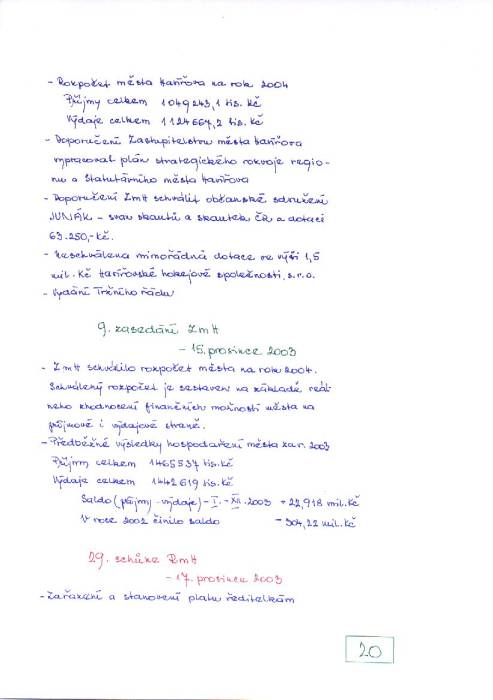 - Rozpočet města Havířova na rok 2004
Příjmy celkem 1 049 243,1 tis. Kč
Výdaje celkem 1 124 667,2 tis. Kč
- Doporučení Zastupitelstvu města Havířova
vypracovat plán strategického rozvoje regio-
nu a Statutárního města Havířova
- Doporučení ZmH schválit občanské sdružení
JUNÁK - svaz skautů a skautek ČR a dotaci
63.250,-Kč.
- Neschválena mimořádná dotace ve výši 1,5
mil. Kč Havířovské hokejové společnosti, s.r.o.
- Vydání Tržního řádu
9. zasedání ZmH
- 15. prosince 2003
- ZmH schválilo rozpočet města na rok 2004.
Schválený rozpočet je sestaven na základě reál-
ného zhodnocení finančních možností města na
příjmové i výdajové straně.
- Předběžné výsledky hospodaření města za r. 2003
Příjmy celkem 1465 537 tis. Kč
Výdaje celkem 1442 619 tis. Kč
Saldo (příjmy - výdaje) - I. - XII. 2003 + 22,918 mil. Kč
V roce 2002 činilo saldo - 304,22 mil. Kč
29. schůze RmH
- 17. prosince 2003
- Zařazení a stanovení platu ředitelkám
20